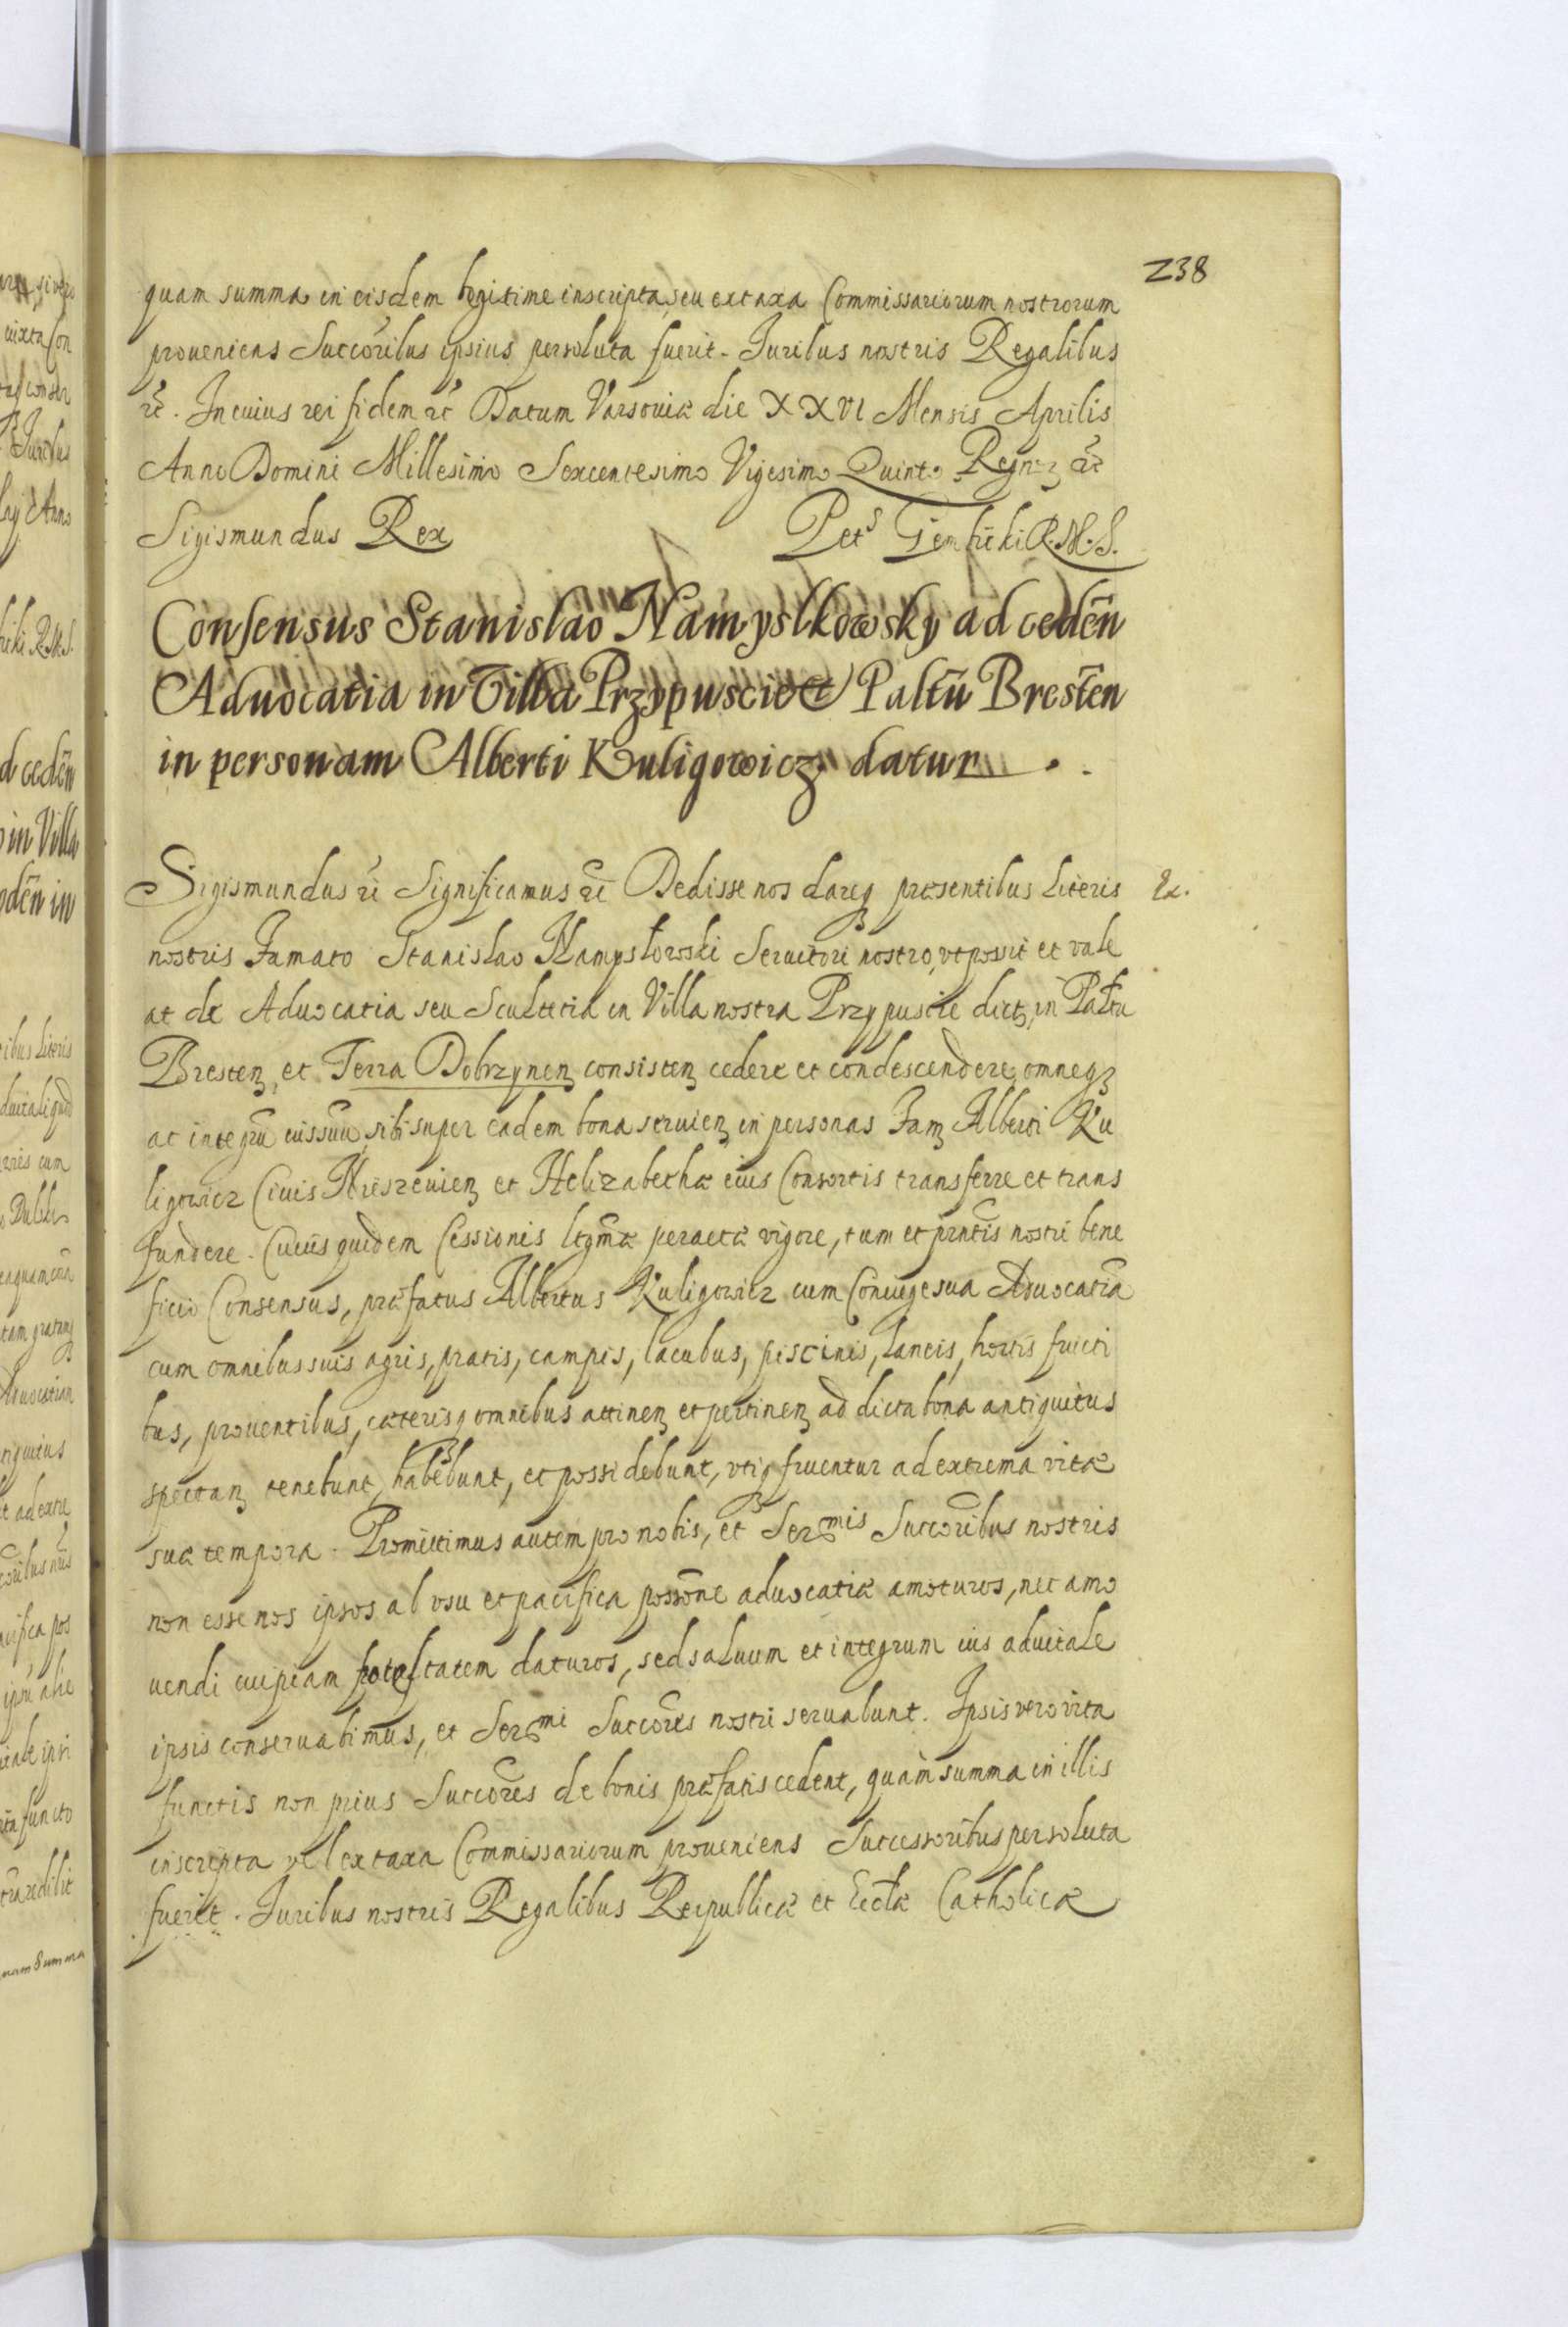 238
quam summa in eisdem legitime inscripta, seu ex taxa Commissariorum nostrorum
proueniens Succoribus ipsius persoluta fuerit. Juribus nostris Regalibus
etc. In cuius rei fidem etc Datum Varsouiæ die XXVI Mensis Aprilis
Anno Domini Millesimo Sexcentesimo Vigesimo Quinto Regnoȝ etc
Sigismundus Rex Pets Gembicki R.M.S.
Consensus Stanislao Namyslkowsky ad cedēn
Aduocatia in Villa Przypuscie Paltū Brestēn
in personam Alberti Kuligowicz datur.
Sigismundus etc Significamus etc Dedisse nos dareq præsentibus Literis
nostris Famato Stanislao Namysłowski Seruitori nostro, vt possit et vale
at de Aduocatia seu Scultetia in Villa nostra Przypuscie dictȝ, in Paltu
Brestenȝ, et Terra Dobrzynenȝ consistenȝ cedere et condescendere, omneqȝ
ac integrū ius suū, sibi super eadem bona seruienȝ in personas Famȝ Alberti Ku
ligowicz Ciuis Nieszeuienȝ et Helizabethæ eius Consortis transferre et trans
fundere. Cuius quidem Cessionis legmæ peractæ vigore, tum et prntis nostri bene
ficio Consensus, præfatus Albertus Kuligowicz cum Coniuge sua Aduocatiā
cum omnibus suis agris, pratis, campis, lacubus, piscinis, Laneis, hortis fructi
bus, prouentibus, cæterisq omnibus attinenȝ et pertinenȝ ad dicta bona antiquitus
spectanȝ tenebunt, habebunt, et possidebunt, vtiq fruentur ad extrema vitæ
suæ tempora. Promittimus autem pro nobis, et Sermis Succoribus nostris
non esse nos ipsos ab vsu et pacifica possōne aduocatiæ amoturos, nec amo
uendi cuipiam potestatem daturos, sed saluum et integrum ius aduitale
ipsis conseruabimus, et Sermi Succores nostri seruabunt. Ipsis vero vita
functis non prius Succores de bonis præfatis cedent, quàm summa in illis
inscripta vel ex taxa Commissariorum proueniens Successoribus persoluta
fuerit. Juribus nostris Regalibus Reipublicæ et Ecclæ Catholicæ